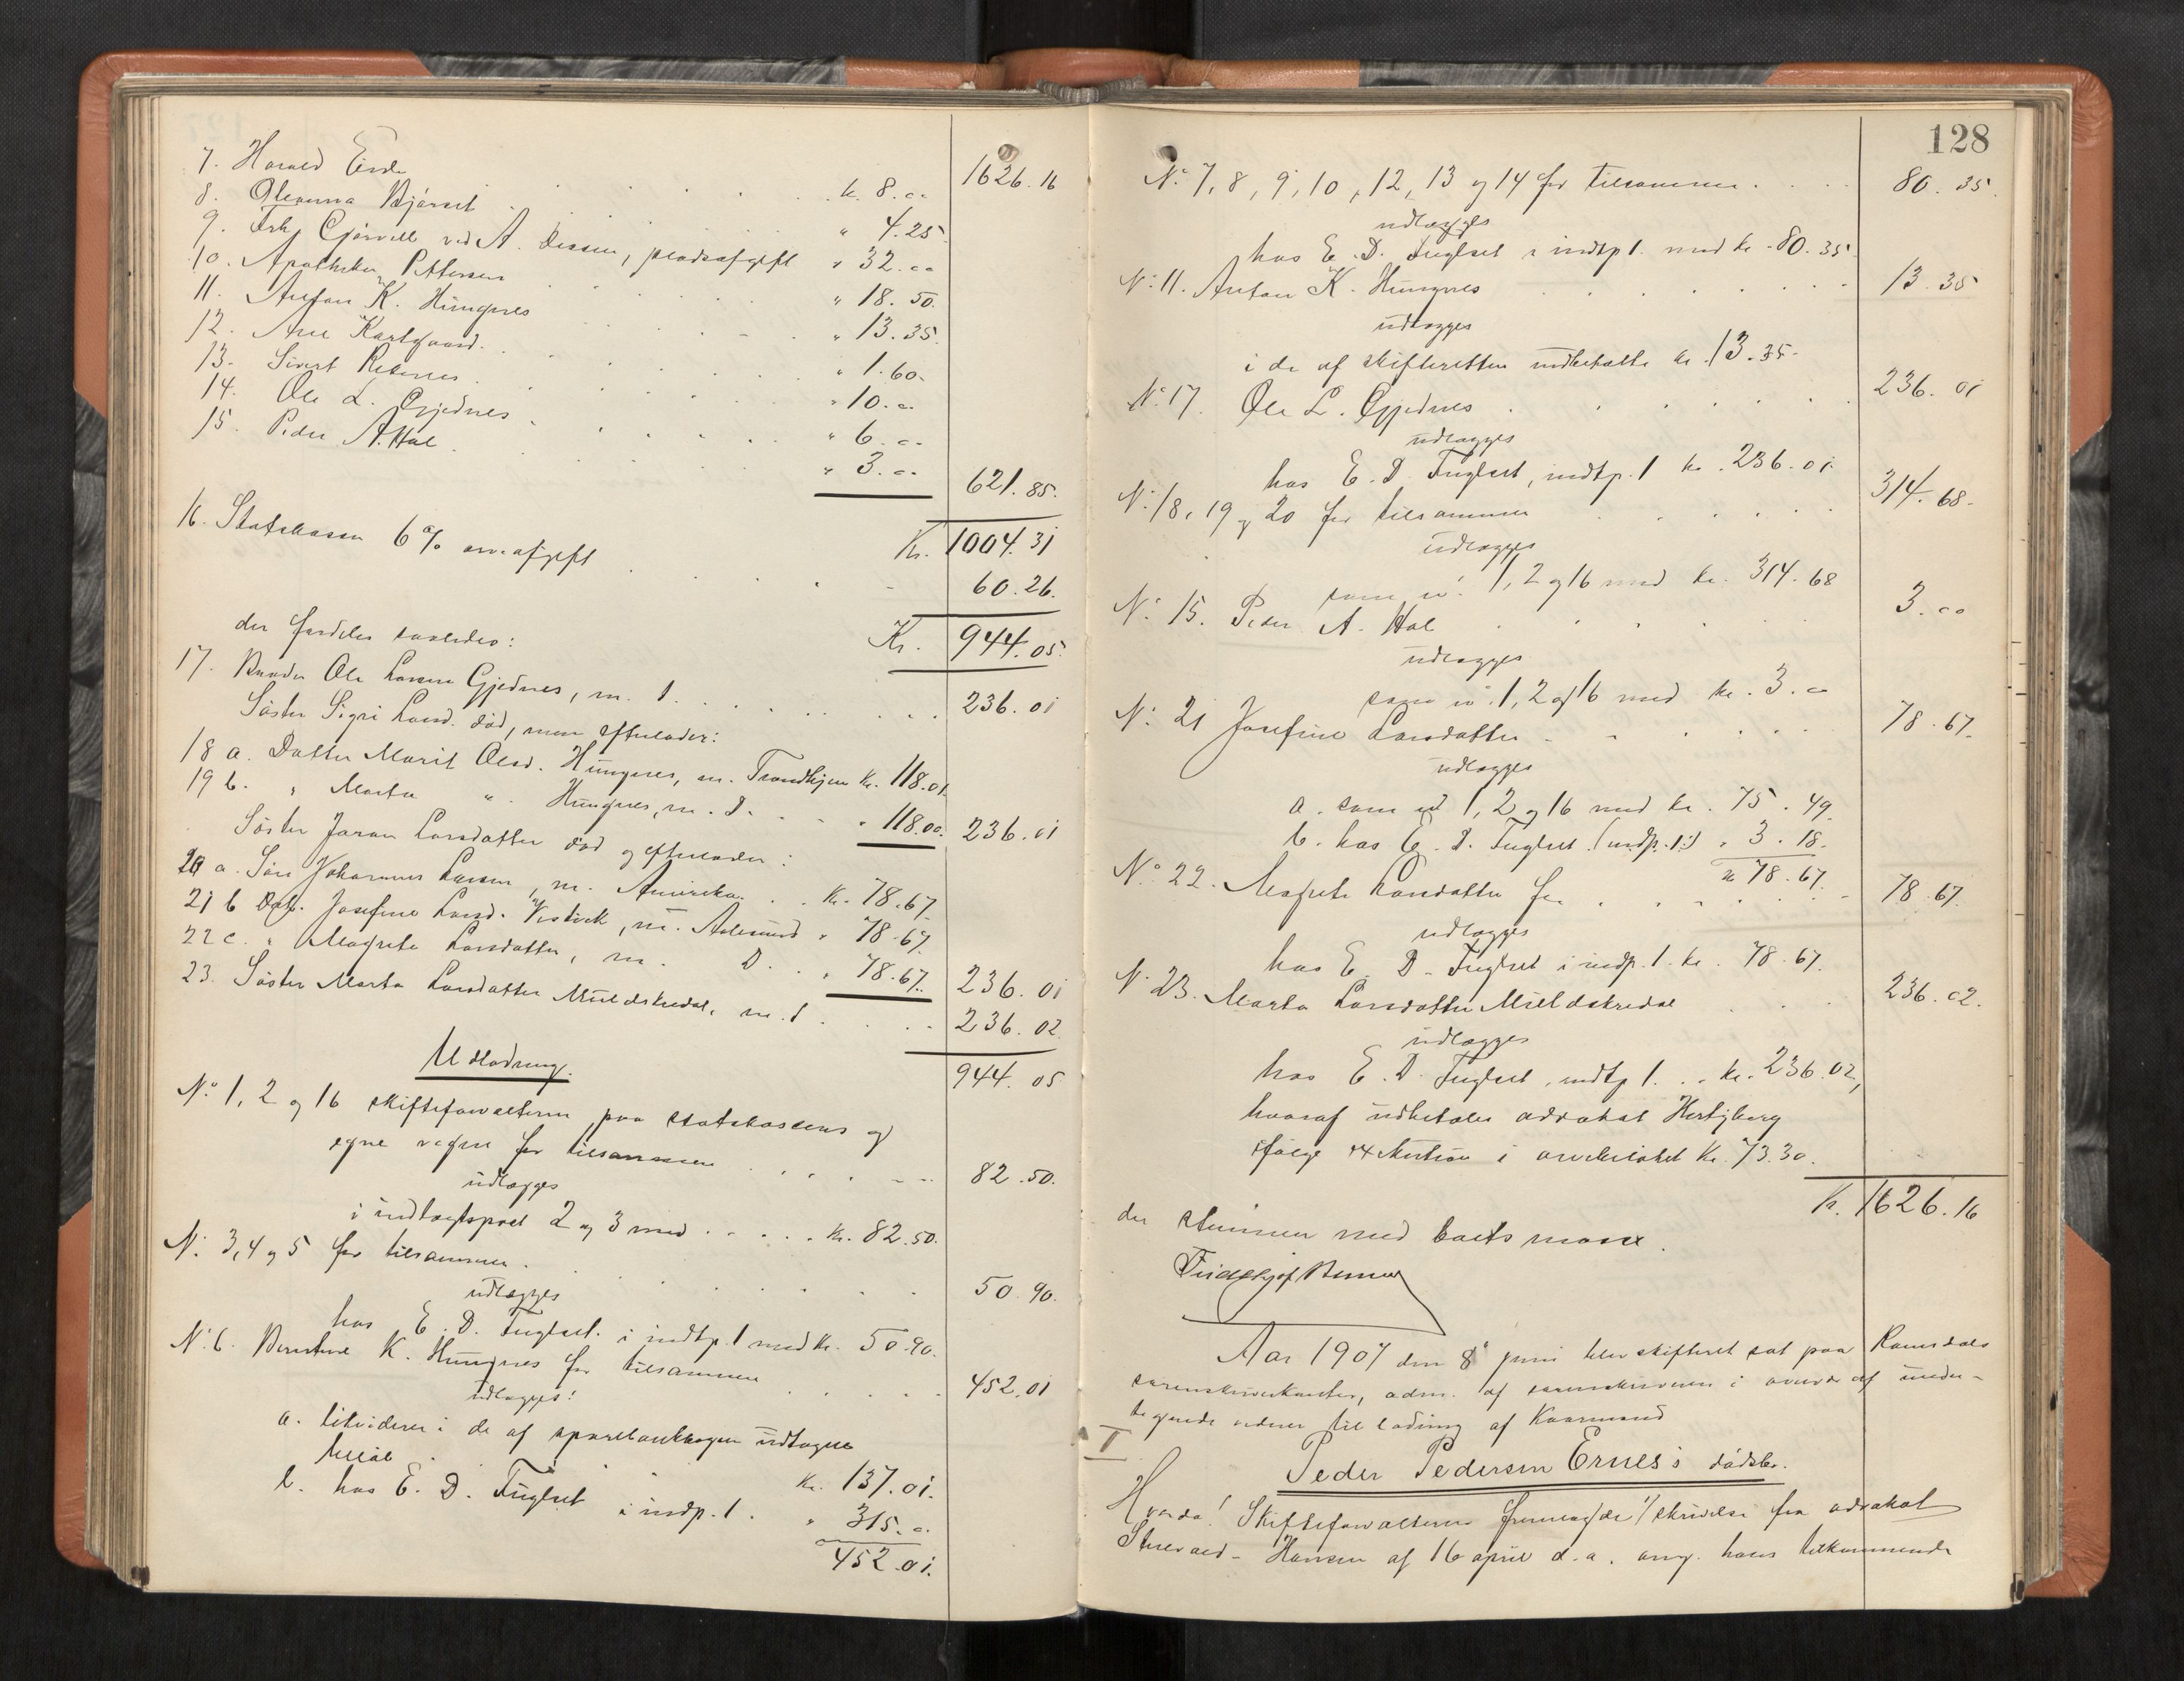 7. Harald Eide 1626.16
8. Oleanna Bjørset . . . . kr. 8.00
9. Frk. Gjørvell ved A. Dessen, pladsafgift " 4.25
10. Apotheker Pettersen " 32.00
11. Anton K. Hungnes " 18.50.
12. Ane Karlsgaard. " 13.35.
13. Sivert Rekenes " 1.60.
14. Ole L. Gjednes " 10.00
15. Peder A. Hol " 6.00
" 3.00 621.85.
Kr. 1004.31
16. Statskassen 6% arveafgift 60.26.
Kr. 944.05.
der fordeles saaledes:
17. Broder Ole Larsen Gjednes, m. 236.01
Søster Sigri Larsd. død, men efterlader:
18 a. Datter Marit Olsd. Hungnes, m. Trondhjem kr. 118.01.
19 b. " Marta " Hungnes, m. D. " 118.00. 236.01
Søster Joran Larsdatter død og efterlader:
20 a. Søn Johannes Larsen, m. Amerika . . kr. 78.67.
21 b Dat. Josefine Larsd. Vestvik, m. Aalesund " 78.67.
22 c. " Magrete Larsdatter, m. D. . " 78.67. 236.01
23. Søster Marta Larsdatter Muldskredal, m. 236.02.
944.05
Udlodning.
No 1, 2 og 16 skifteforvalteren paa statskassens og
egne vegne for tilsammen 82.50.
udlægges
i indtægtspost 2 og 3 med . . . . kr. 82.50.
No. 3, 4 og 5 for tilsammen . 50.90.
udlægges
hos E. D. Fuglset i indtp. 1 med kr. 50.90.
No. 6. Berntine K. Hungnes for tilsammen 452.01
udlægges:
a. likviderer i de af sparebankbogen udtagne
beløb kr. 137.01.
b. hos E. D. Fuglset i indp. 1. " 315.00
452.01.
128
No. 7, 8, 9, 10, 12, 13 og 14 for tilsammen . . . . 80.35.
udlægges
hos E. D. Fuglset i indtp 1. med kr. 80.35.
No. 11. Anton K. Hungnes 13.35
udlægges
i de af skifteretten indbetalte kr. 13.35.
No. 17. Ole L. Gjednes 236.01
udlægges
hos E. D. Fuglset, indtp. 1 kr. 236.01.
No. 18, 19 og 20 for tilsammen 314.68.
udlægges
som no. 1, 2 og 16 med kr. 314.68
No. 15. Peder A. Hol 3.00
udlægges
som no. 1, 2 og 16 med kr. 3.00
No. 21 Josefine Larsdatter 78.67.
udlægges
a. som no 1, 2 og 16 med kr. 75.49.
b. hos E. D. Fuglset (indp. 1:) " 3.18.
kr 78.67.
No. 22. Magrete Larsdatter for 78.67.
udlægges
hos E. D. Fuglset i indp. 1. kr. 78.67.
No. 23. Marta Larsdatter Muldskredal 236.02.
udlægges
hos E. D. Fuglset, indtp 1. . . kr. 236.02,
hvoraf udbetales advokat Hertzberg
ifølge exekution i arvebeløbet kr. 73.30.
Kr. 1626.16
der stemmer med boets masse.
Aar 1907 den 8 juni blev skifteret sat paa Romsdals
sorenskriverkontor, adm. af sorenskriveren i overvær af under-
tegnede vidner til lodning af Kaarmand
I
Peder Pedersen Ernes's dødsbo.
Hvorda! Skifteforvalteren fremlagde 1/ skrivelse fra advokat
Hansen af 16 april d.a. ang. hans tilkommende